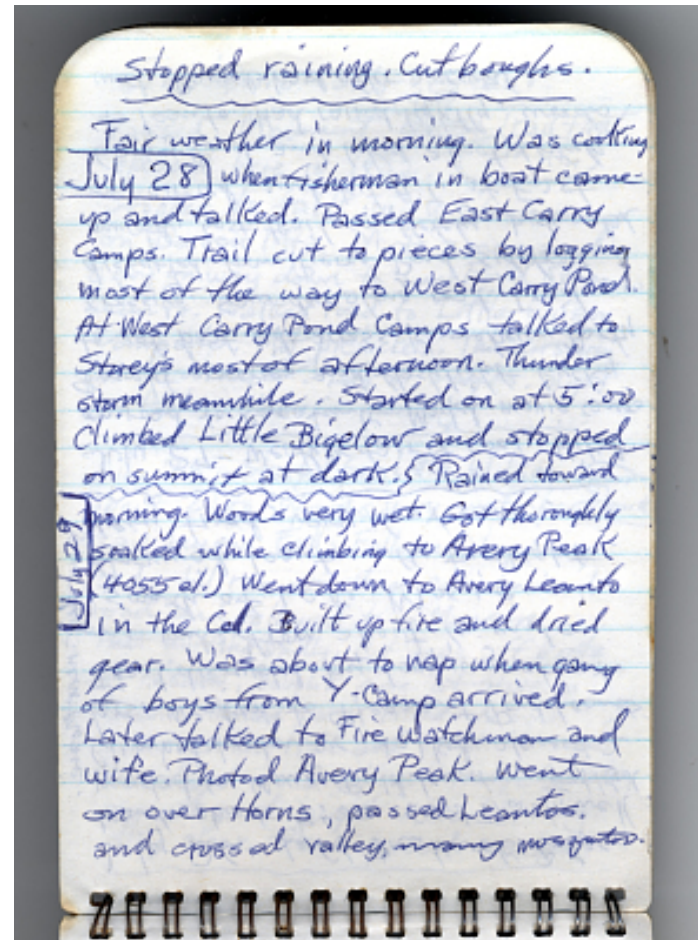 Stopped raining. Cut boughs.
Fair weather in morning. Was cooking
July 28 when fisherman in boat came
up and talked. Passed East Carry
Camps. Trail cut to pieces by logging
most of the way to West Carry Pond.
At West Carry Pond Camps talked to
Storey's most of afternoon. Thunder
storm meanwhile. Started on at 5:00
Climbed Little Bigelow and stopped
on summit at dark. Rained toward
July 29
morning. Woods very wet. Got thoroughly
soaked while climbing to Avery Peak
(4055 el.) Went down to Avery Leanto
in the Col. Built up fire and dried
gear. Was about to nap when gang
of boys from Y-Camp arrived.
Later talked to Fire Watchman and
wife. Photod Avery Peak. Went
on over Horns, passed Leantos.
and crossed valley, many mosquitos.